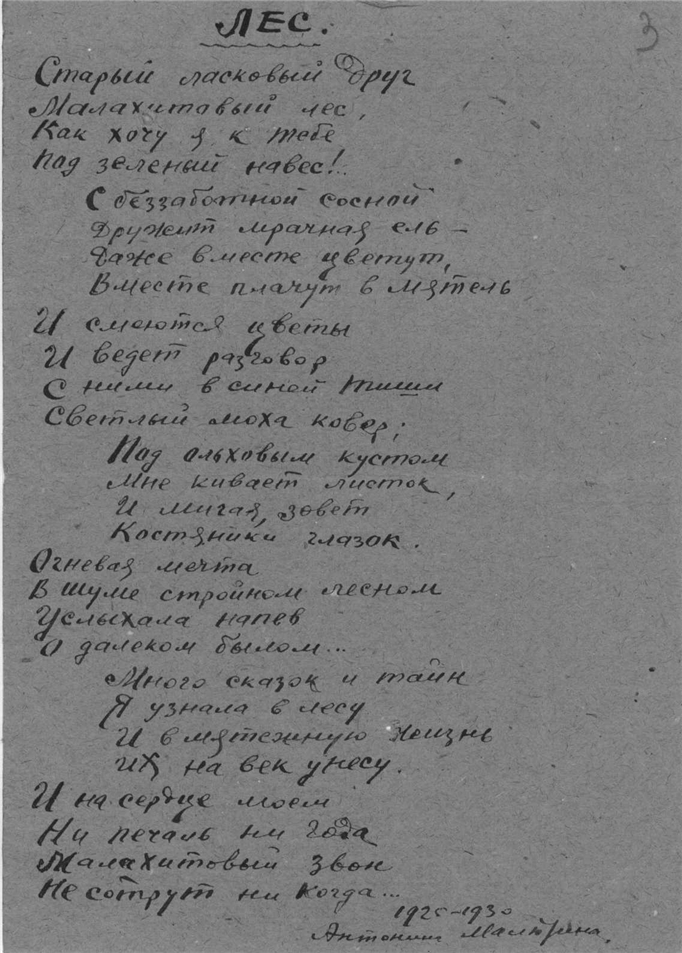 ЛЕС.
3
Старый ласковый друг
Малахитавый лес,
Как хочу я к тебе
Под зеленый навес!..
С беззаботной сосной
Дружит мрачная ель –
Даже вместе цветут,
Вместе плачут в мятель
И смеются цветы
И ведет разговор
С ними в синой тиши
Светлый моха ковер;
Под ольховым кустом
Мне кивает листок,
И мигая, зовет
Костяники глазок.
Огневая мечта
В шуме стройном лесном
Услыхала напев
О далеком былом...
Много сказок и тайн
Я узнала в лесу
И в мятежную жизнь
Их на век унесу.
И на сердце моем
Ни печаль ни года
Малахитовый звон
Не сотрут ни когда...
1925–1930
Антонина